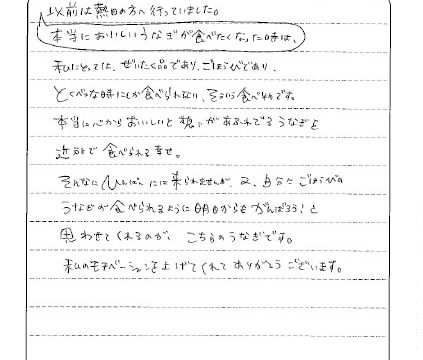 以前は熱田の方へ行っていました。
本当においしいうなぎが食べたくなった時は、
私にとっては、ぜいたく品であり、ごほうびであり、
とくべつな時にしか食べられない、そういう食べ物です。
本当に心からおいしいと思いがあふれでるうなぎを
近所で食べられる幸せ。
そんなにひんぱんには来られませんが、又、自分にごほうびの
うなぎが食べられるように明日からもがんばろう!と
思わせてくれるのが、こちらのうなぎです。
私のモチベーションを上げてくれてありがとうございます。